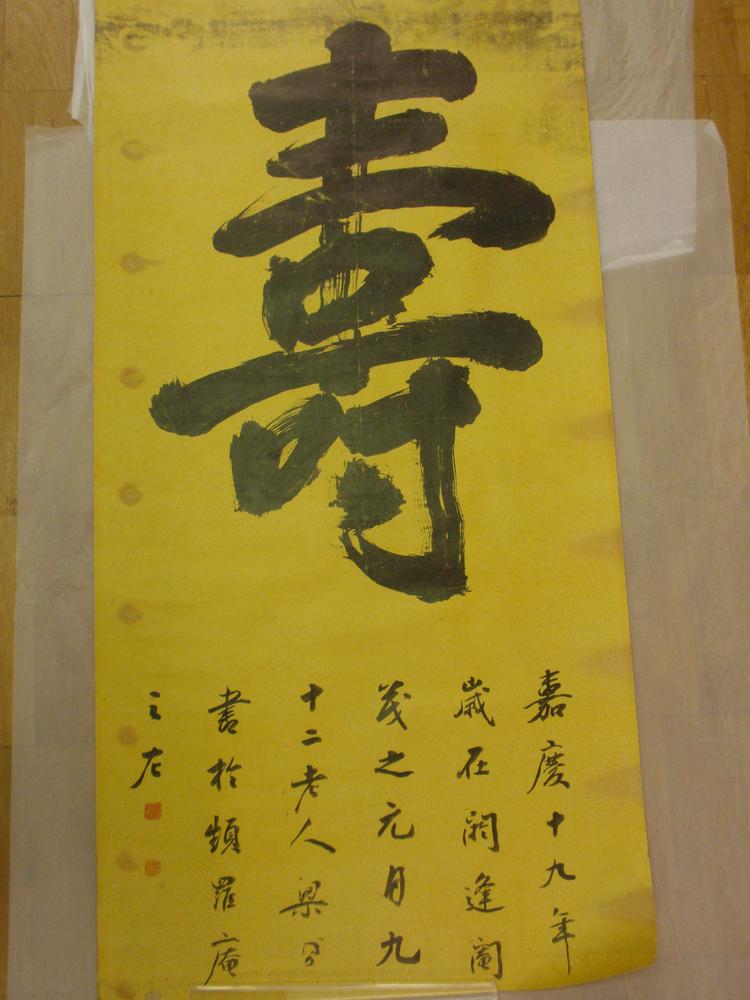 壽
嘉慶十九年
歲在閼逢閹
茂之元月九
十二老人梁同
書於頻羅庵
之左